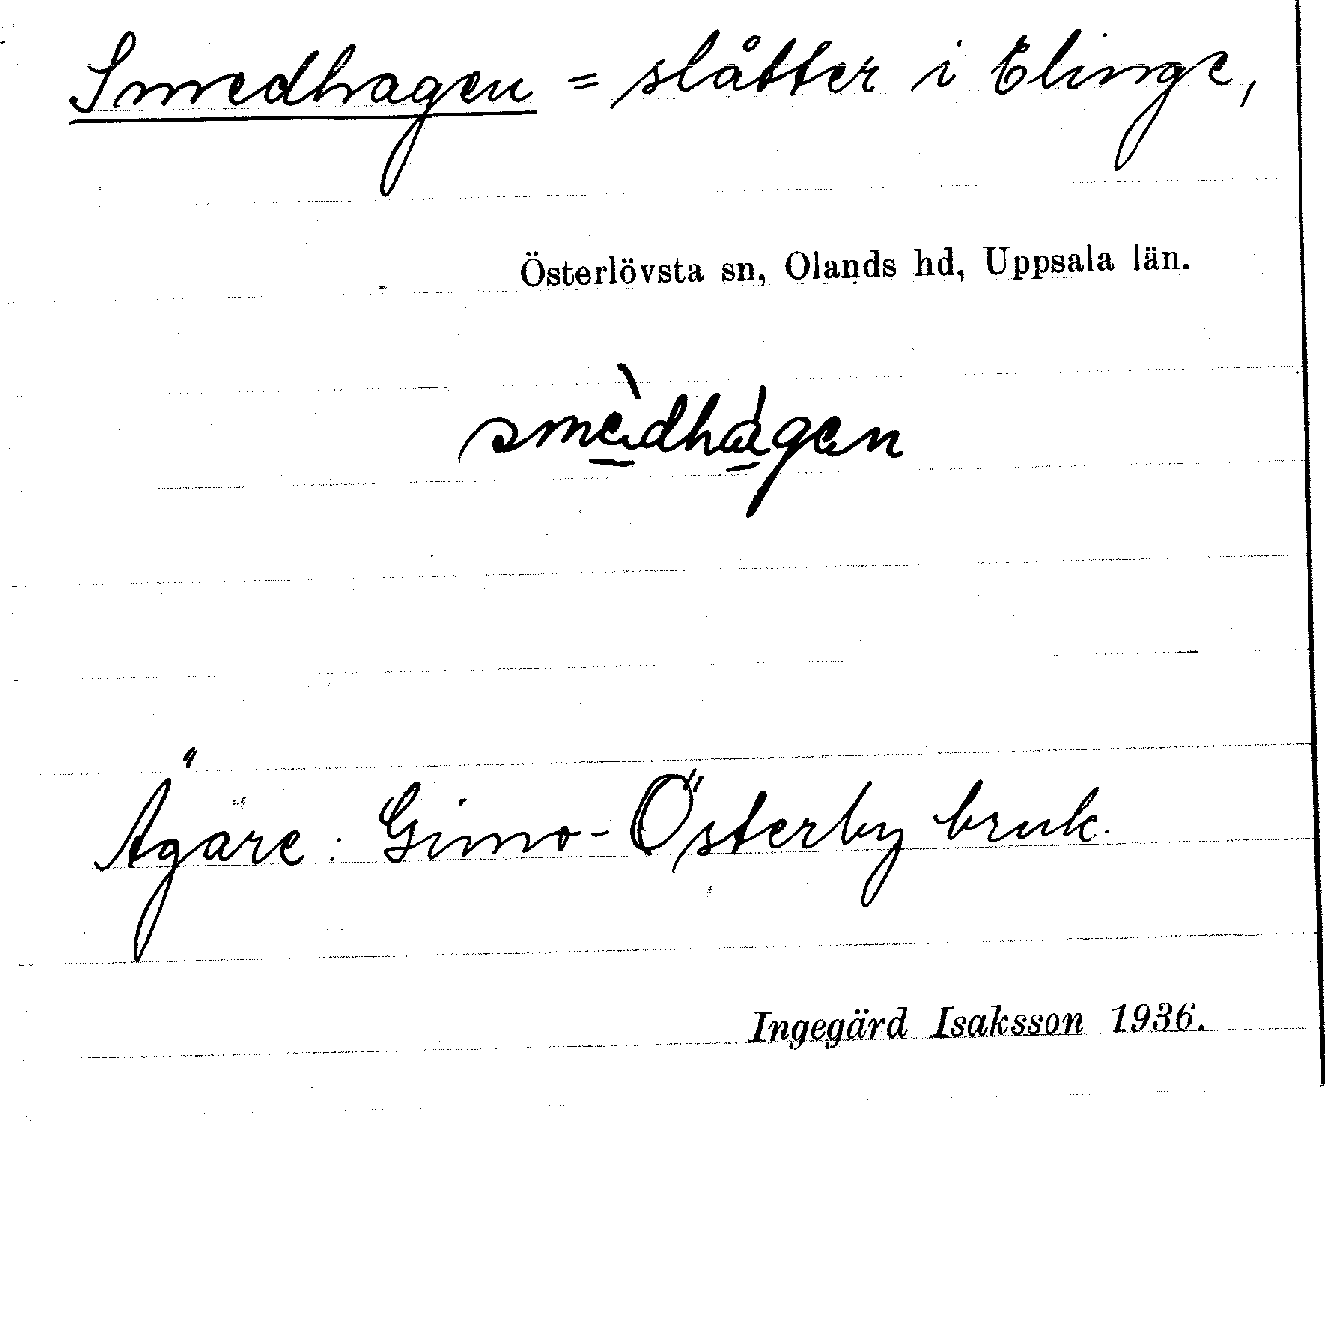 Smedhagen = slåtter i Elinge,
Österlövsta sn, Olands hd, Uppsala län.
smèdhágen
Ägare: Gimo-Österby bruk.
Ingegärd Isaksson 1936.